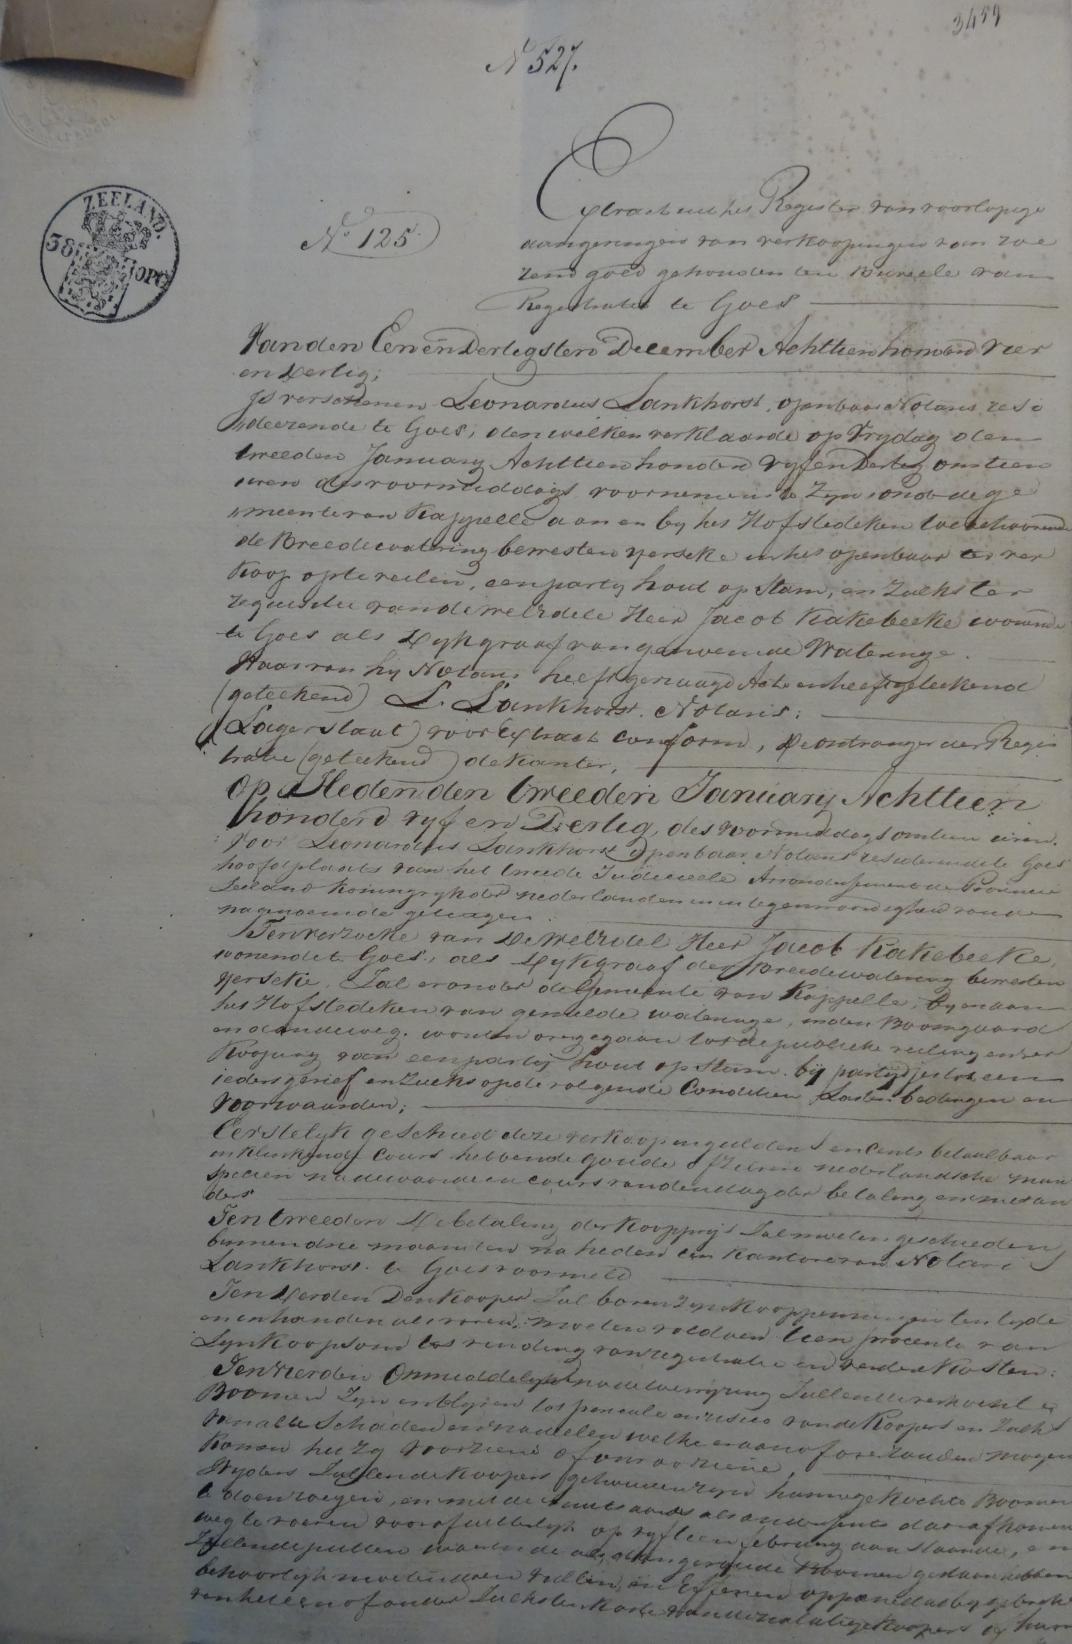 3459
N 527.
ZEELAND.
38
OPC
No 125
Extract uit het Register van voorlopige
aangevingen van verkoopingen van roe
rend goed gehouden ten Bureele van
Registratie te Goes
Van den Eenendertigsten December Achttienhonderd Vier
en dertig;
Is verschenen Leonardus Lankhorst, openbaar Notaris resi
deerende te Goes, denwelken verklaarde op Vrydag den
tweeden January Achttienhonderd Vyf en Dertig om tien
uren des voormiddags voornemens te Zyn, onder de ge
meente van Kappelle aan en by het Hofstedeken toebehoorende
de Breedewatering bewesten yerseke in het openbaar te ver
koop op te veilen, een party hout op Stam, en zulks ter
requisitie van de welEdele Heer Jacob Kakebeeke wonende
te Goes als Dykgraaf van genoemde Wateringe.
Waarvan hy Notaris heeft gevraagd Acte en heeft geteekend
(geteekend) L. Lankhorst. Notaris;
(Lager staat) voor Extract conform, De ontvanger der Regis
tratie (geteekend) de Kanter,
Op Heden den tweeden January Achttien
honderd vyf en Dertig, des voormiddags om tien uren.
Voor Leonardus Lankhorst Openbaar Notaris residerende te Goes
hoofdplaats van het tweede Judicieele Arrondissement de Provincie
Zeeland Koningryk der nederlanden en in tegenwoordigheid van de
nagenoemde getuigen
Ten verzoeke van De WelEdel Heer Jacob Kakebeeke,
wonende te Goes, als Dykgraaf der Breedewatering bewesten
yerseke. Zal er onder de Gemeente van Kappelle, by en aan
het Hofstedeken van gemelde wateringe, in den Boomgaard
en dan de weg. worden overgegaan tot de publieke veiling en ver
kooping van een partij hout op Stam. bij partijdjes tot een
ieders gerief en zulks op de volgende Conditien Lasten bedingen en
Voorwaarden;
Eerstelyk geschied deze verkoop in guldens en Cents betaalbaar
in klinkende Cours hebbende goude of zilvere nederlandsche mun
specien na de waarde en cours van den dag der betaling en niet an
ders
Ten tweeden De betaling der Kooppryis Zal moeten geschieden
binnen drie maanden na heden ten Kantore van Notaris
Lankhorst te Goes voormeld
Ten Derden Den Kooper Zal boven Zyn Kooppenningen ten tyde
en in handen als voren, moeten voldoen tien procento van
Zyn Koopsom tot vinding van registratie en verdere Kosten:
Ten Vierden Onmiddelyk na de toewyzing Zullen de verkochte
Boomen Zyn en blyven tot pericule en risico van de Koopers en Zulks
van alle Schaden en nadeelen welke er aan of over Zouden mogen
komen het zy voorziene of onvoorziene,
Wyders Zullen de Koopers gehouden zyn hunne gekochte Boomen
te doen roeyen, en met de
weg te voeren voor of uitterlyk op vyftien february aanstaande, en
Zullende putten waarin de uitgeroyde Boomen gestaan hebben
behoorlyk moeten doen vullen, en Effenen op poene dat by gebreke
van het een of ander Zulks ten koste van de nalatige Koopers of hun